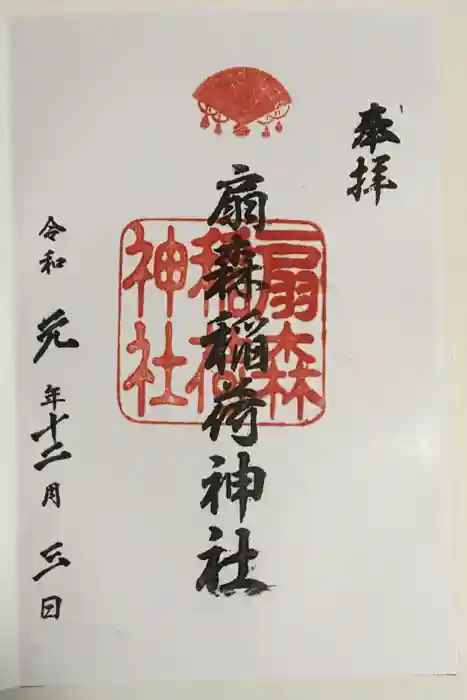 奉拝
扇森稲荷神社
扇森
稲荷
神社
令和元年十二月三一日